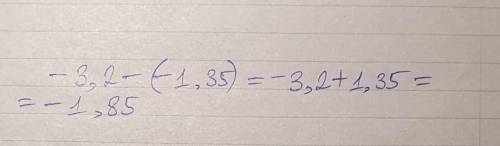 -3,2-(-1,35)=-3,2+1,35=
=-1,85